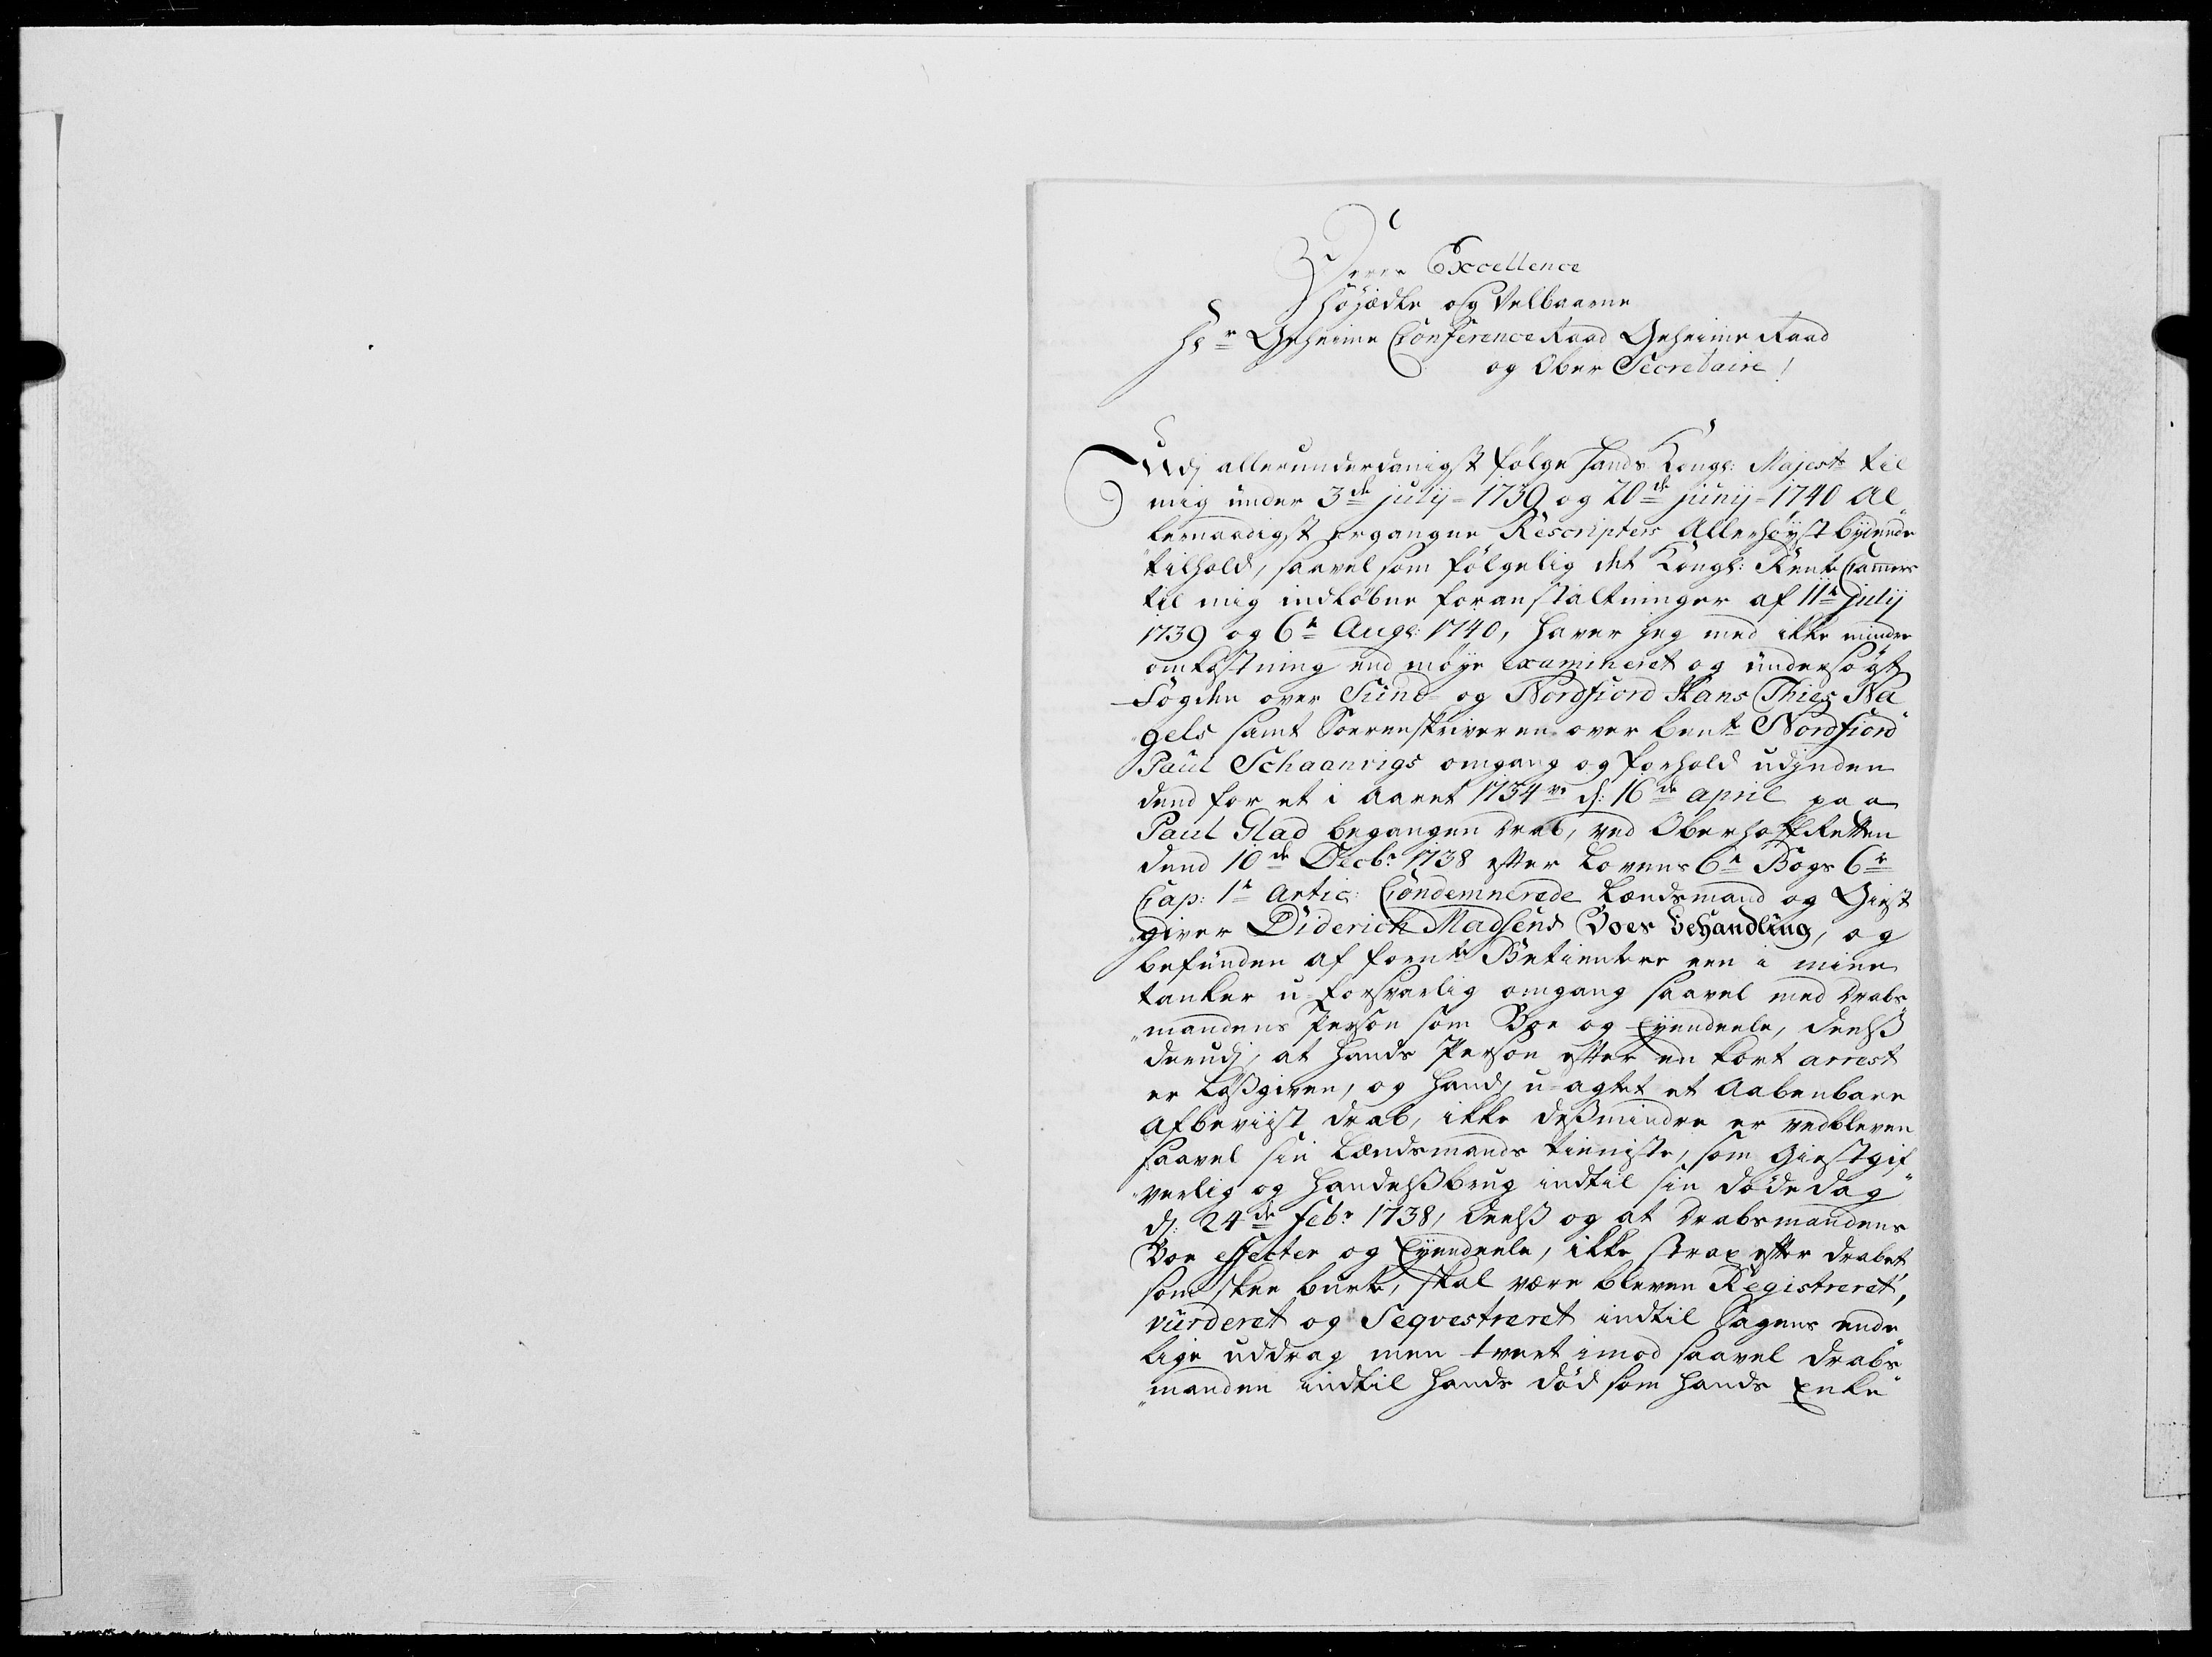 Deres Excellence
Höjædle og Velbaarne
Hr Geheime Conference Raad Geheime Raad
og Ober Secretaire!
Udj allerunderdanigst følge Hands Kongl: Majests til
mig under 3de julij = 1739 og 20de junij = 1740 Al„
„lernaadigst ergangne Rescripters Allerhøyst bydende
tilhold, saavelsom følgelig det Kongl: Rente Cammers
til mig indløbne foranstaltninger af 11te julij
1739 og 6te Augs: 1740, haver jeg med ikke mindre
omkostning end møye examineret og undersøgt
Fogden over Sund- og Nordfiord Hans Thies Na„
„gels samt Sorenskriveren over bemte Nordfiord
Paul Schaanrigs omgang og forhold udjnden
dend for et i Aaret 1734ve d: 16de april paa
Paul Glad begangen drab, ved Oberhoffretten
dend 10de Decbr 1738 efter Lovens 6te Bogs 6te
Cap: 1te Artic: Condemnerede Lændsmand og Giest„
„giver Diderich Madsens Boes behandling, og
befunden af fornte Betientere een i mine
tanker u-forsvarlig omgang saavel med drabs„
„mandens Person som Boe og Eyendeele, deelss
derudj, at hands Person efter en kort arrest
er løssgiven, og hand, u-agtet et Aabenbare
Afbeviist drab, ikke dessmindre er vedbleven
saavel sin Lændsmands tieniste, som Giestgif„
„verlig og handelssbrug indtil sin døde dag
d: 24de febr 1738, deelss og at drabsmandens
Boe effecter og Eyendeele, ikke strax efter drabet
som skee burte, skal være bleven Registreret,
vurderet og Seqvestreret indtil Sagens ende„
lige uddrag men tvert imod saavel drabs„
„manden indtil hands död som hands Enke